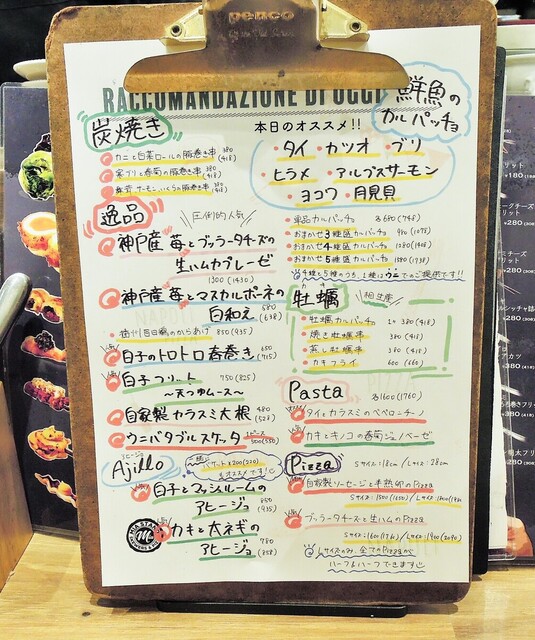 penco
RACCOMANDAZIONE DI OGGI
炭焼き
カニと白菜ロールの豚巻き串 380 (418)
寒ブリと春菊の豚巻き串 380 (418)
サーモンといくらの豚巻き串 380 (418)
逸品
圧倒的人気
神戸産 苺とブッラータチーズの
生ハムカプレーゼ
1300 (1430)
神戸産 苺とマスカルポーネの
白和え 580 (638)
のからあげ 850 (935)
白子のトロトロ春巻き 650 (715)
白子フリット 750 (825)
〜天つゆムース〜
自家製カラスミ大根 480 (528)
ウニバタブルスケッタ 1ピース 500 (550)
アヒージョ
Ajillo
ご一緒に
バケット ¥200 (220)
もオススメです!
白子とマッシュルームの
アヒージョ 850 (935)
カキと大ネギの
アヒージョ 780 (858)
鮮魚の
カルパッチョ
本日のオススメ!!
タイ カツオ ブリ
ヒラメ アルプスサーモン
ヨコワ 月見貝
単品カルパッチョ 各680 (748)
おまかせ3種盛カルパッチョ 980 (1078)
おまかせ4種盛カルパッチョ 1280 (1408)
おまかせ5種盛カルパッチョ 1580 (1738)
4種と5種のうち、1種はウニでのご提供です!!
牡蠣 相生産
牡蠣カルパッチョ 1ヶ 380 (418)
焼き牡蠣串 380 (418)
蒸し牡蠣串 380 (418)
カキフライ 600 (660)
Pasta 各1600 (1760)
タイとカラスミのペペロンチーノ
カキとキノコの春菊ジェノベーゼ
Pizza Sサイズ 18cm / Lサイズ 28cm
自家製ソーセージと半熟卵のPizza
Sサイズ: 1500 (1650) / Lサイズ: 1800 (1980)
ブッラータチーズと生ハムのPizza
Sサイズ: 1600 (1760) / Lサイズ: 1900 (2090)
Lサイズのみ、全てのPizzaが
ハーフ&ハーフできます